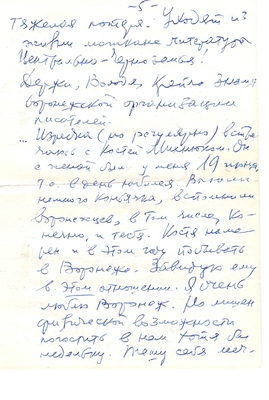 – 5 –
Тяжелая потеря. Уходят из
жизни могикане литературы
Центрально-Черноземья.
Держи, Володя, крепко знамя
воронежской организации
писателей.
... Изредка (но регулярно) встре
чаюсь с Костей Он
с женой был у меня 19 июня,
т.е. в день юбилея. Выпили
немного коньячка, вспомнили
воронежцев, в том числе, ко-
нечно, и тебя. Костя наме-
рен и в этом году побывать
в Воронеже. Завидую ему
в этом отношении. Я очень
люблю Воронеж. Но лишен
физической возможности
погостить в нем хотя бы
недельку. Тешу себя меч-